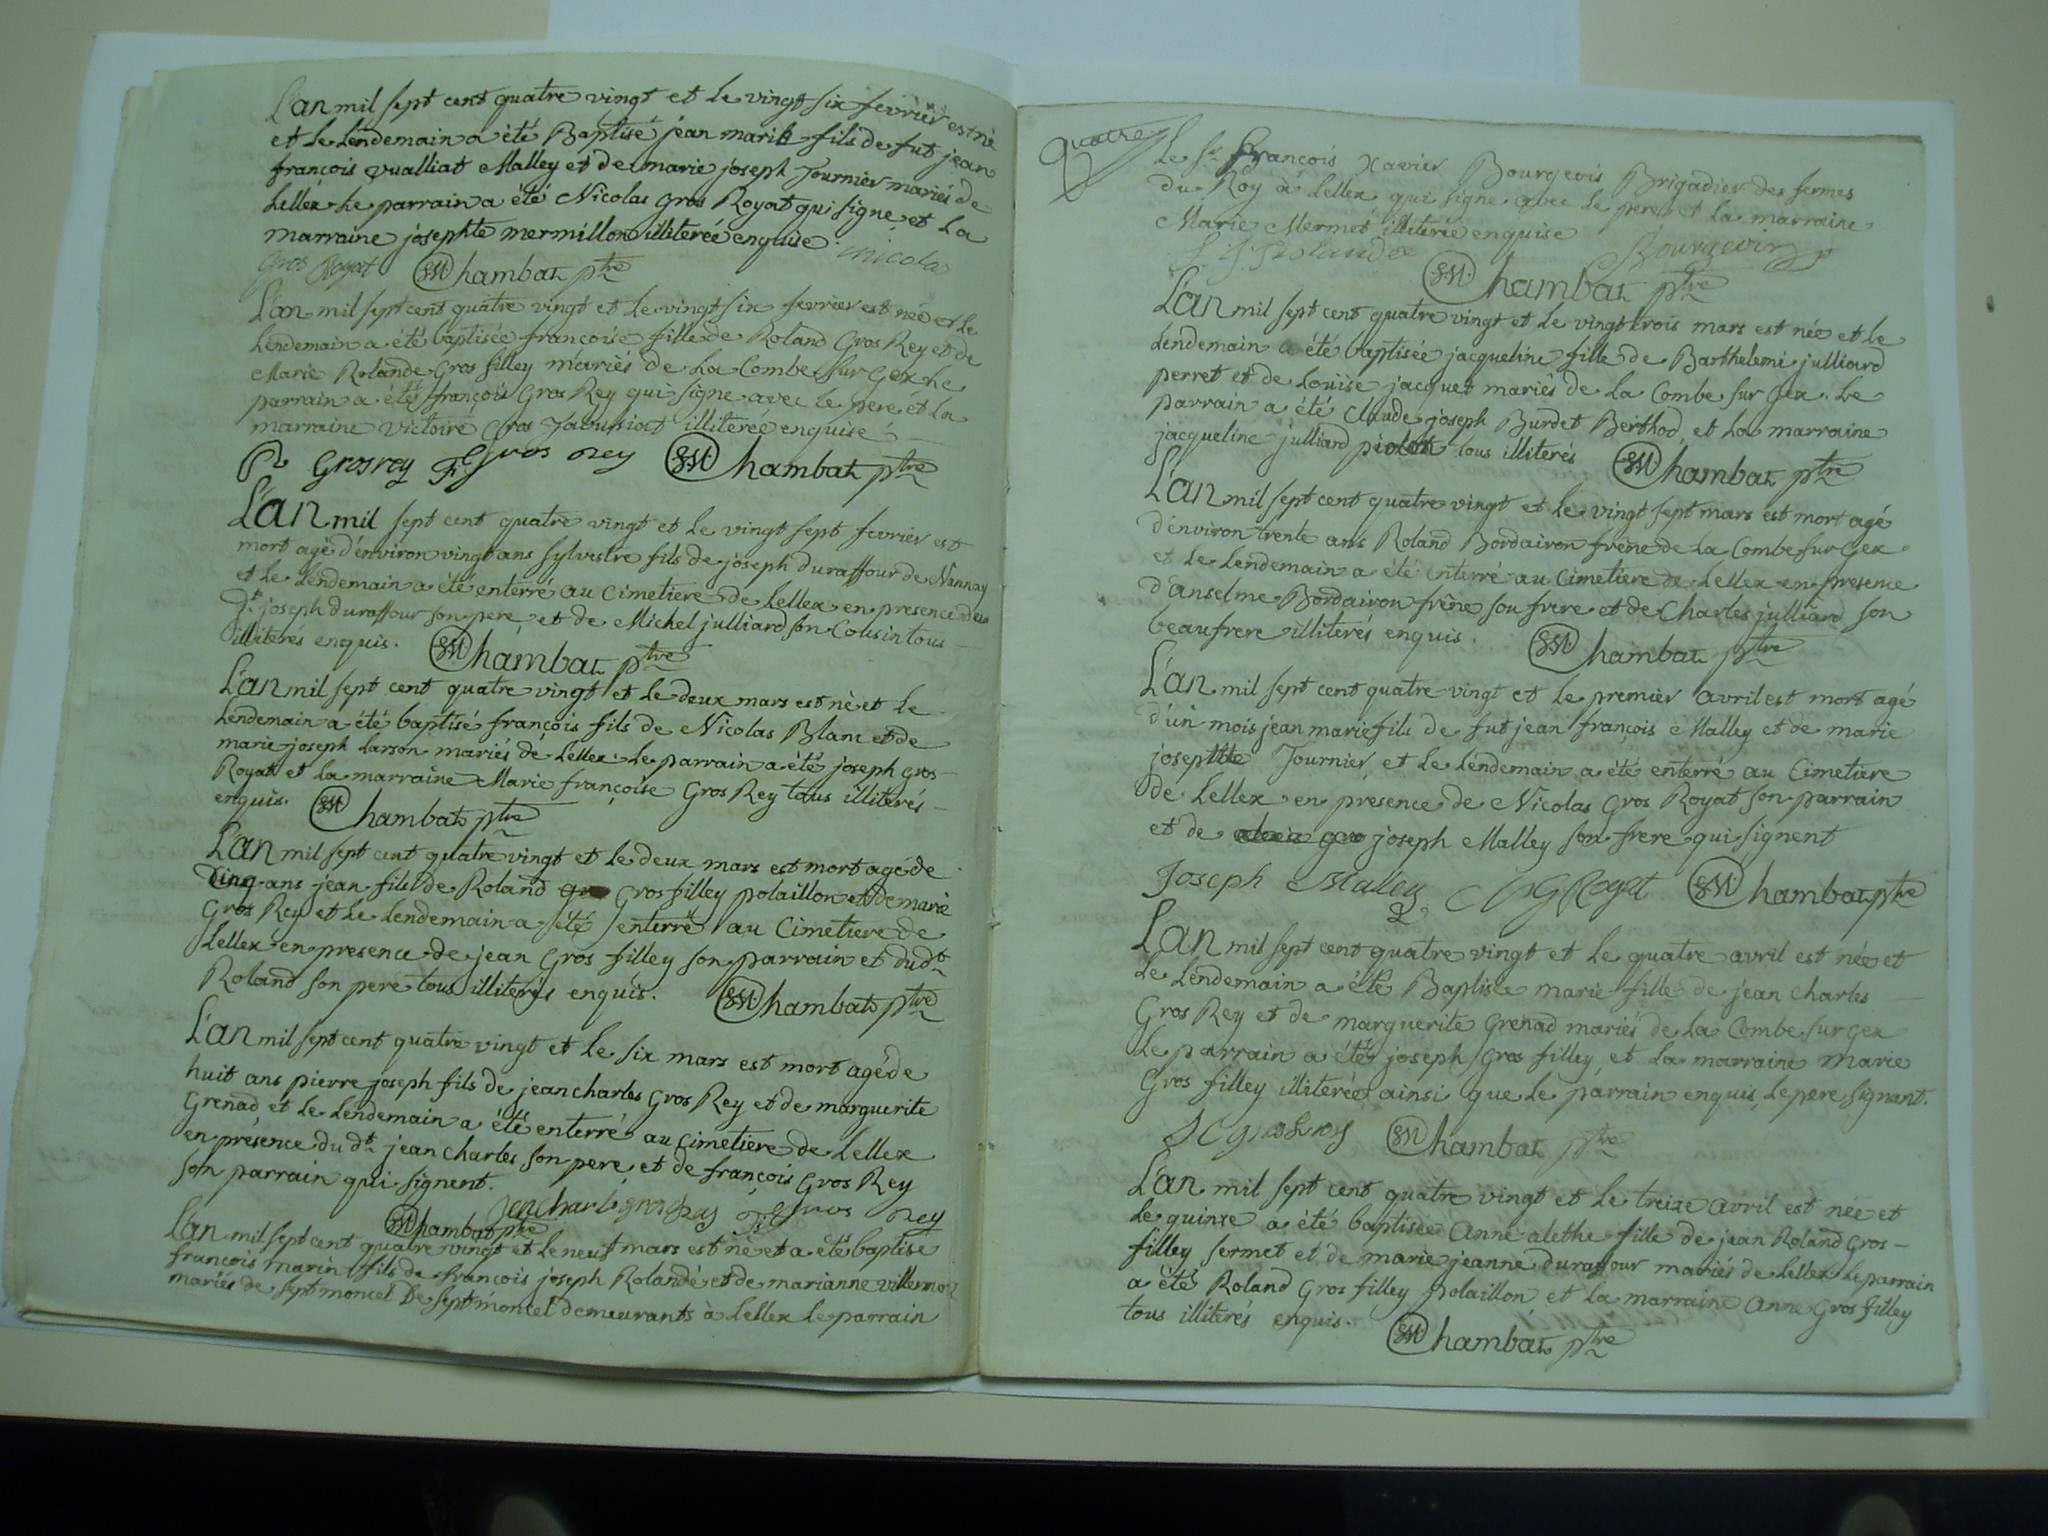 L'an mil sept cent quatre vingt et le vingt six fevrier est né
et le lendemain a été Baptisé jean marie fils de fut jean
françois vualliat Malley et de marie joseph Tournier mariés de
Lellex le parrain a été Nicolas Gros Royat qui signe et la
marraine josephte mermillon illiterée enquise nicolas
Gros Royat Chambat ptre
L'an mil sept cent quatre vingt et le vingt six fevrier est née et le
lendemain a été baptisée françoise fille de Roland Gros Rey et de
Marie Rolande Gros filley mariés de la Combe sur Gex le
parrain a été françois Gros Rey qui signe avec le pere et la
marraine victoire Gros illiterée enquise
R Gros rey F Gros rey Chambat ptre
L'an mil sept cent quatre vingt et le vingt sept fevrier est
mort agé d'environ vingt ans sylvestre fils de joseph duraffour de
et le lendemain a été enterré au Cimetiere de Lellex en presence du
dt joseph duraffour son pere et de Michel julliard son Cousin tous
illiterés enquis. Chambat ptre
L'an mil sept cent quatre vingt et le deux mars est né et le
lendemain a été baptisé françois fils de Nicolas Blanc et de
marie joseph Larson mariés de Lellex le parrain a été joseph Gros
Royat et la marraine Marie françoise Gros Rey tous illiterés
enquis. Chambat ptre
L'an mil sept cent quatre vingt et le deux mars est mort agé de
cinq ans jean fils de Roland Gros filley polaillon et de marie
Gros Rey et le lendemain a été enterré au Cimetiere de
Lellex en presence de jean Gros filley son parrain et dudt
Roland son pere tous illiterés enquis. Chambat ptre
L'an mil sept cent quatre vingt et le six mars est mort agé de
huit ans pierre joseph fils de jean charles Gros Rey et de marguerite
Grenad et le lendemain a été enterré au cimetiere de Lellex
en présence du dt jean charles son pere et de françois Gros Rey
son parrain qui signent.
jen charle gros rey F Gros rey
Chambat ptre
L'an mil sept cent quatre vingt et le neuf mars est né et a été baptisé
françois marin fils de françois joseph Rolandé et de marianne
mariés de septmoncel De septmoncel demeurants à Lellex le parrain
Quatre
Le Sr françois Xavier Bourgeois Brigadier des fermes
du Roy à Lellex qui signe avec le pere et la marraine
Marie Mermet illiterée enquise
Chambat ptre
L'an mil sept cent quatre vingt et le vingt trois mars est née et le
lendemain a été baptisée jacqueline fille de Barthelemi julliard
perret et de Louise jacquet mariés de la Combe sur Gex. Le
parrain a été Claude joseph Burdet Berthod et la marraine
jacqueline julliard tous illiterés Chambat ptre
L'an mil sept cent quatre vingt et le vingt sept mars est mort agé
d'environ trente ans Roland Bordairon frêne de la Combe sur Gex
et le lendemain a été enterré au cimetiere de Lellex en presence
d'anselme Bordairon frêne son frere et de Charles julliard son
beaufrere illiterés enquis. Chambat ptre
L'an mil sept cent quatre vingt et le premier avril est mort agé
d'un mois jean marie fils de fut jean françois Malley et de marie
josephte Tournier et le lendemain a été enterré au Cimetiere
de Lellex en présence de Nicolas Gros Royat son parrain
et de joseph Malley son frere qui signent
Joseph Malley N G Royat Chambat ptre
L'an mil sept cent quatre vingt et le quatre avril est née et
le lendemain a été Baptisée marie fille de jean charles
Gros Rey et de marguerite Grenad mariés de la Combe sur Gex
le parrain a été joseph Gros filley et la marraine marie
Gros filley illiterée ainsi que le parrain enquis, le pere signant.
Chambat ptre
L'an mil sept cent quatre vingt et le treize avril est née et
le quinze a été baptisée Anne alethe fille de jean Roland Gros
filley fermet et de marie jeanne duraffour mariés de Lellex le parrain
a été Roland Gros filley polaillon et la marraine Anne Gros filley
tous illiterés enquis. Chambat ptre